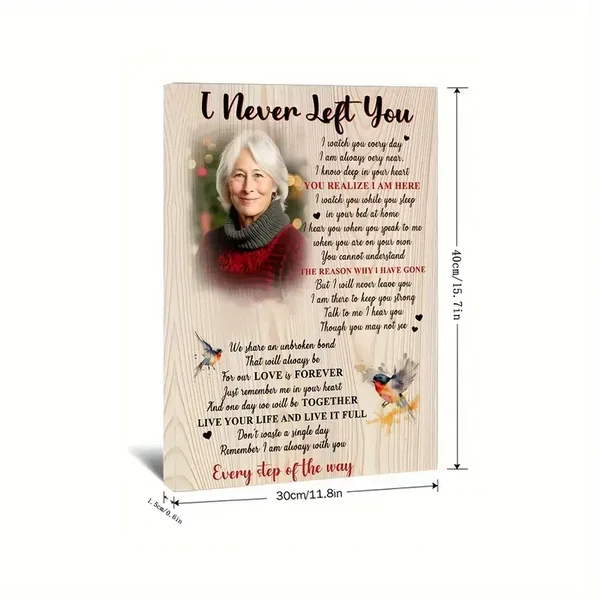 I Never Left You
I watch you every day
I am always very near.
I know deep in your heart
YOU REALIZE I AM HERE
I watch you while you sleep
in your bed at home
I hear you when you speak to me
when you are on your own
You cannot understand
THE REASON WHY I HAVE GONE
But I will never leave you
I am there to keep you strong
Talk to me I hear you
Though you may not see
We share an unbroken bond
That will always be
For our LOVE is FOREVER
Just remember me in your heart
And one day we will be TOGETHER
LIVE YOUR LIFE AND LIVE IT FULL
Don't waste a single day
Remember I am always with you
Every step of the way
40cm/15.7in
30cm/11.8in
1.5cm/0.6in